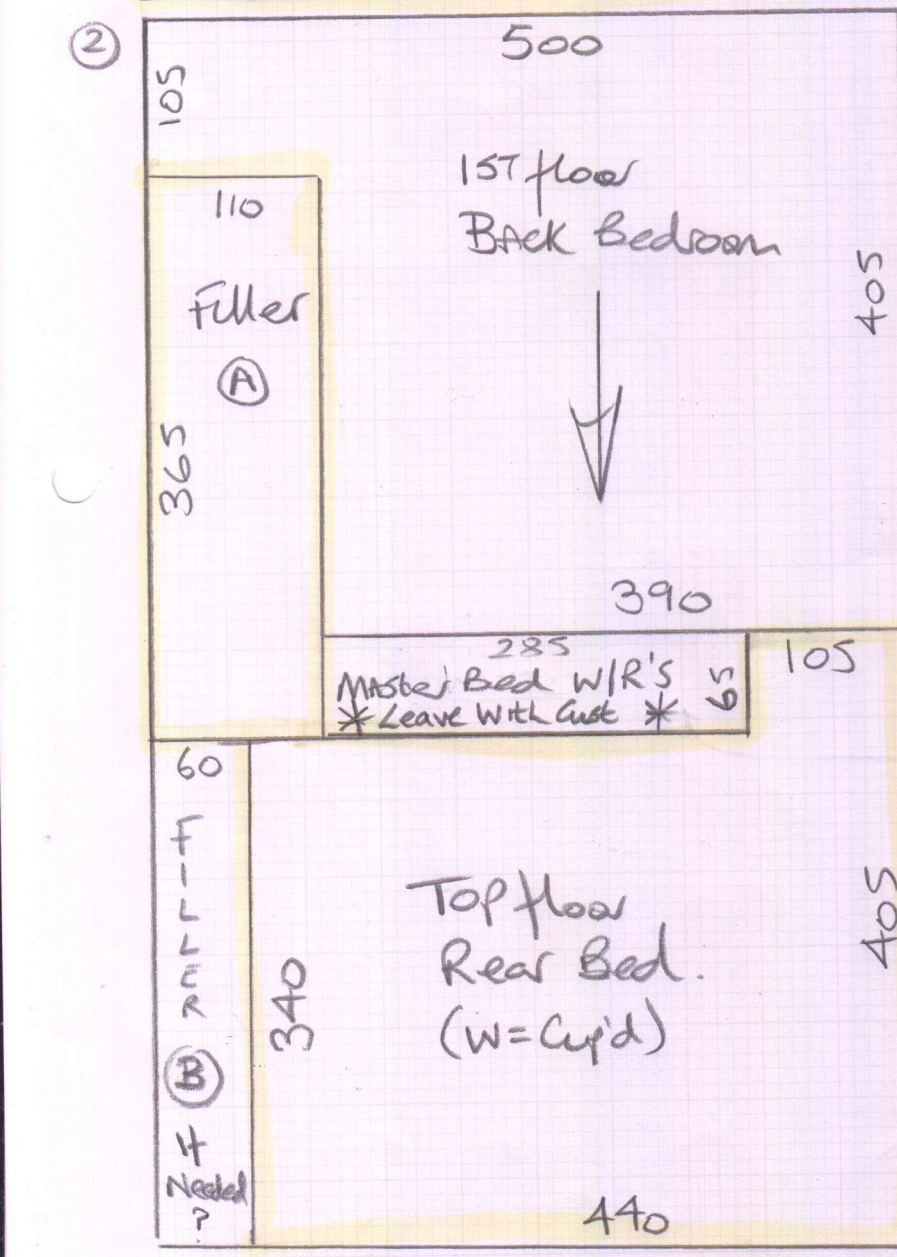 2
500
105
1ST floor
Back Bedroom
110
Filler
A
405
365
390
285
105
Master Bed W/R'S
65
* Leave With Cust *
60
FILLER
B
If
Needed
?
Top floor
Rear Bed.
(W=Cup'd)
340
405
440